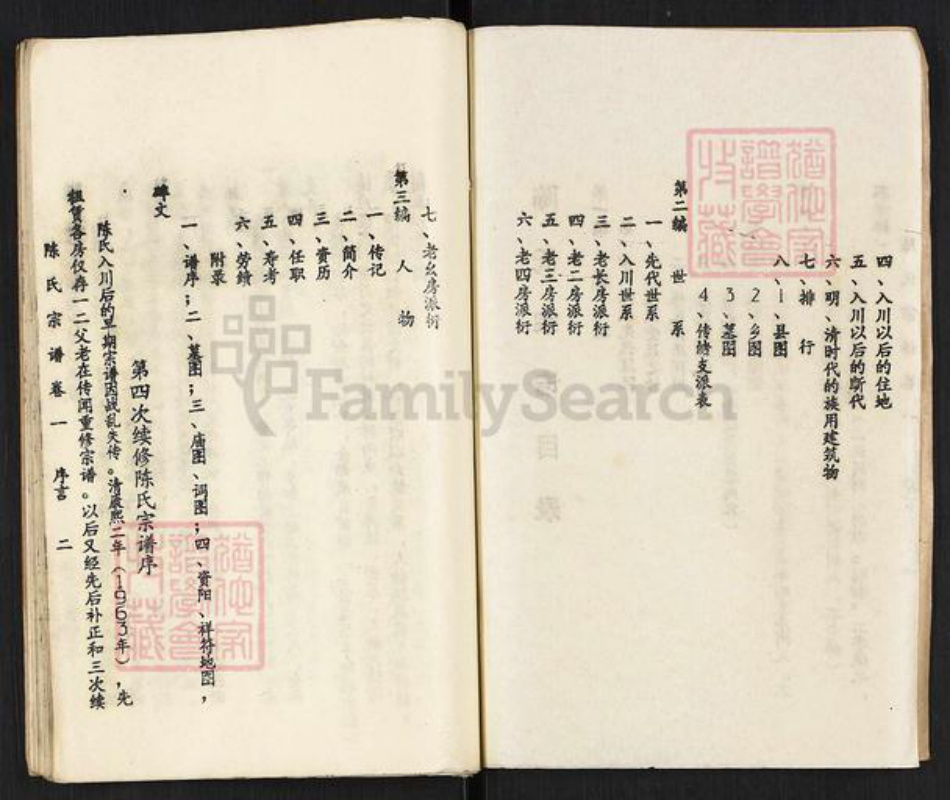 四、入川以后的住地
五、入川以后的断代
六、明、清时代的族用建筑物
七、排 行
八、1、县图
2、乡图
3、墓图
4、传绪支派表
第二编 世 系
一、先代世系
二、入川世系
三、老长房派衍
四、老二房派衍
五、老三房派衍
六、老四房派衍
七、老幺房派衍
第三编 人 物
一、传记
二、简介
三、资历
四、任职
五、寿考
六、劳绩
附录
一、谱序；二、墓图；三、庙图、词图；四、资阳、祥符地图，
碑文
第四次续修陈氏宗谱序
陈氏入川后的早期宗谱因战乱失传。清康熙二年（1963年），先
祖赁各房仅存一二父老在传闻重修宗谱。以后又经先后补正和三次续
陈氏宗谱卷一 序言 二
猶他家
譜學會
收藏
猶他家
譜學會
收藏
FamilySearch